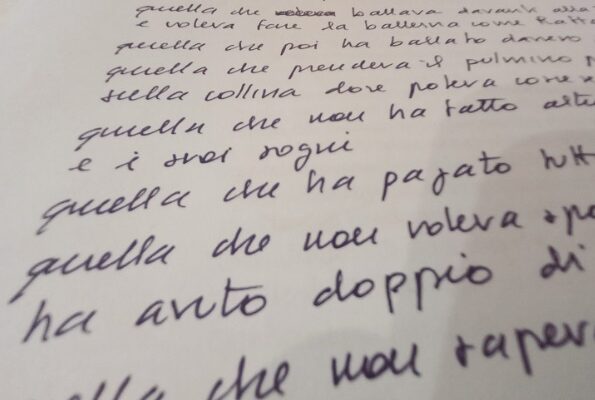 quella che ballava davanti alla
e voleva fare la ballerina come
quella che poi ha ballato davvero
quella che prendeva il pulmino
sulla collina dove poteva
quella che non ha fatto
e i suoi sogni
quella che ha pagato
quella che non voleva
ha avuto doppio di
che non